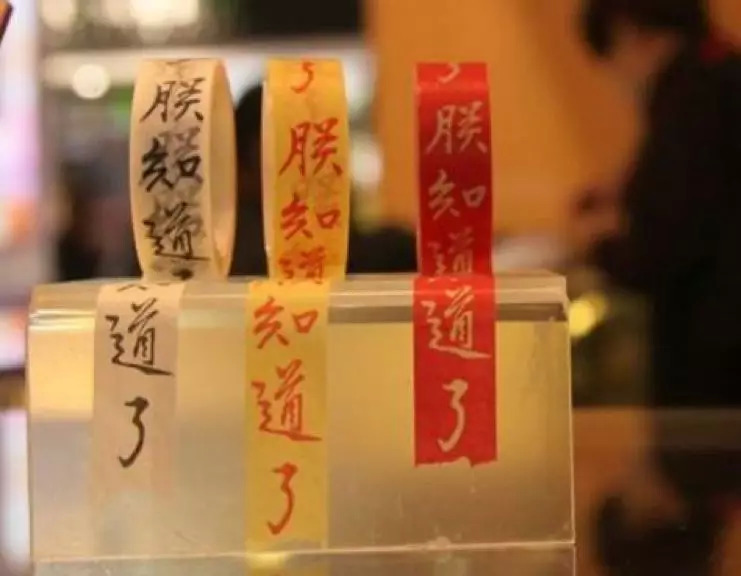 朕知道了
道了
了朕知道
知道了
了朕知道
道了